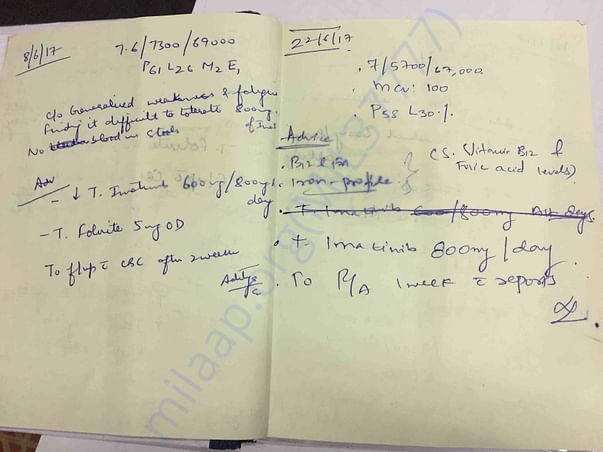 8/6/17
7.6/7300/69000
P61 L26 M2 E1
c/o Generalised weakness & fatigue
Finding it difficult to tolerate 800mg
No blood in stools of Imat
Adv
- ↓ T. Imatinib 600mg/800mg
day
- T. Folvite 5mg OD
To f/up c̄ CBC after 2 weeks
Aditya
22/6/17
. 7/5700/67,000
. mcv: 100
. P58 L30%
Advice
. B12
. Iron-profile
(S. Vitamin B12 &
Folic acid levels)
. T Imatinib 600/800mg Alt days.
. T Imatinib 800mg/day
. To R/A 1 week c̄ reports
milaap.org